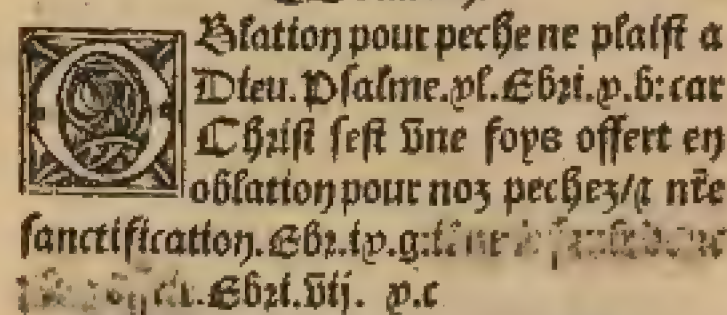 OBlation pour peche ne plaist a
Dieu. Psalme.xl. Ebri.x.b: car
Christ sest vne foys offert en
oblation pour noz pechez/⁊ nr̃e
sanctification. Ebr.ix.g:
Ebri.vij. x.c